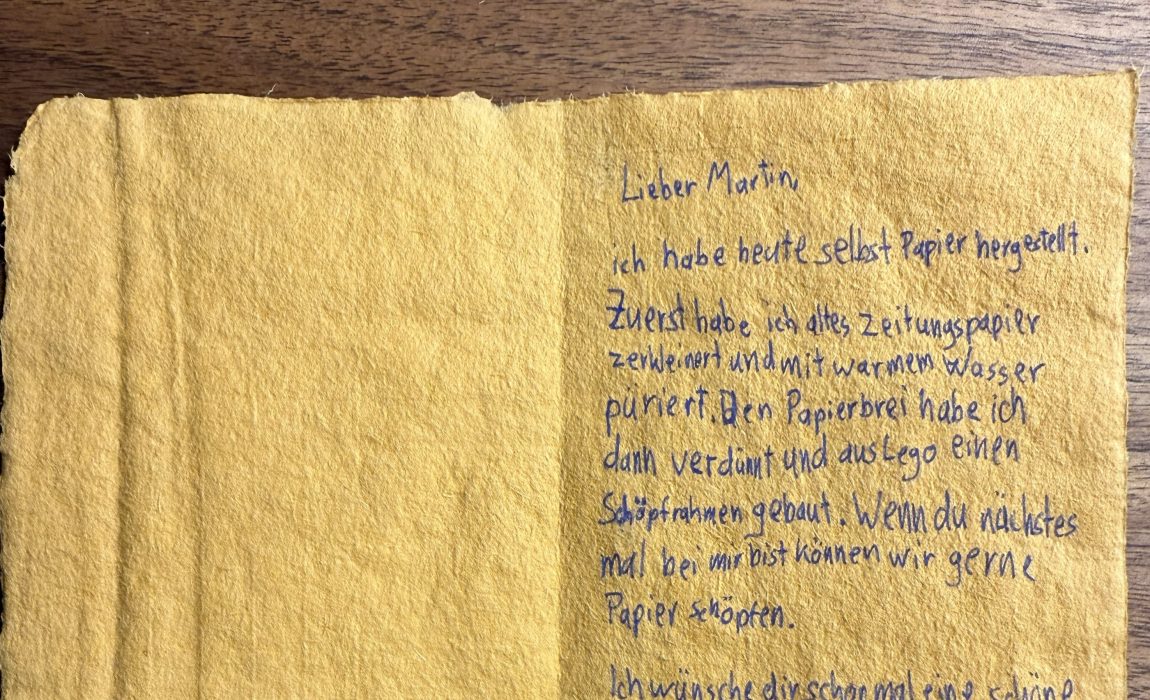 Lieber Martin,
ich habe heute selbst Papier hergestellt.
Zuerst habe ich altes Zeitungspapier
zerkleinert und mit warmem Wasser
püriert. Den Papierbrei habe ich
dann verdünnt und aus Lego einen
Schöpfrahmen gebaut. Wenn du nächstes
mal bei mir bist können wir gerne
Papier schöpfen.
Ich wünsche dir schon mal eine schöne